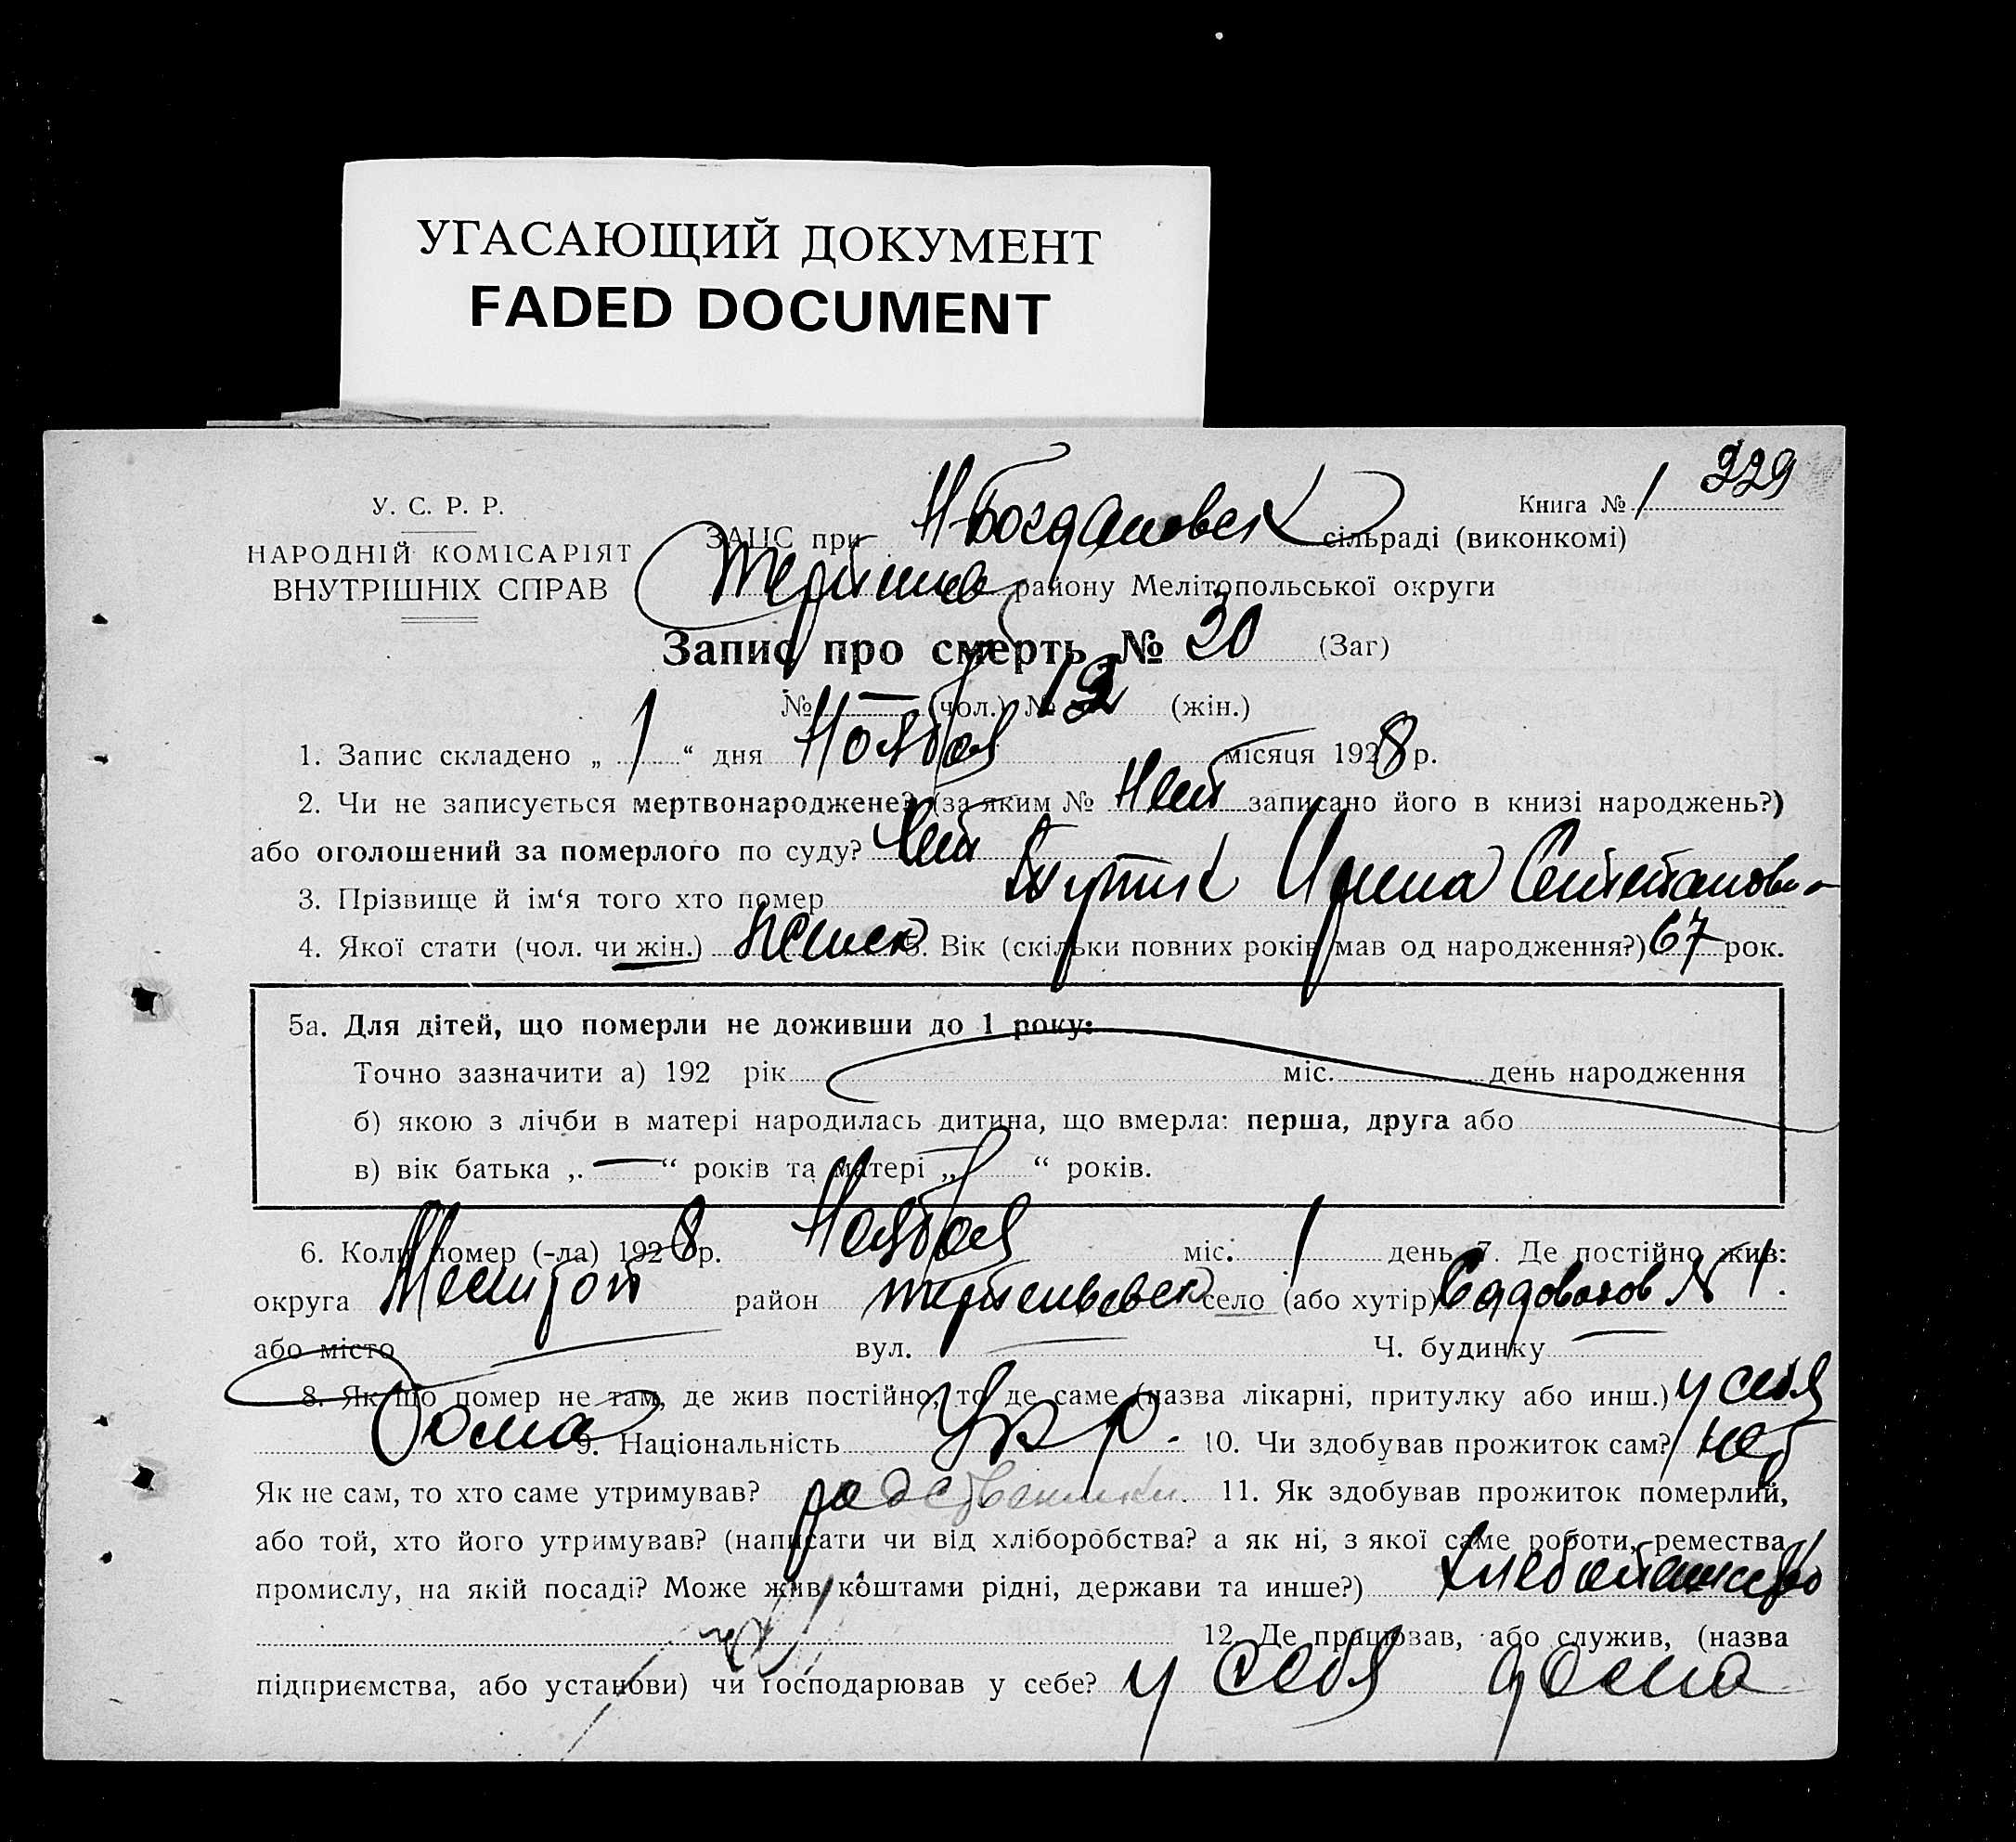 УГАСАЮЩИЙ ДОКУМЕНТ
FADED DOCUMENT
329
У. С. Р. Р.
НАРОДНІЙ КОМІСАРІЯТ
ВНУТРІШНІХ СПРАВ
Книга № 1
ЗАЦС при Н-Богдановск сільраді (виконкомі)
району Мелітопольської округи
Запис про смерть № 30 (Заг)
№ — (чол.) № 12 (жін.)
1. Запис складено „ 1 “ дня Ноября місяця 1928 р.
2. Чи не записується мертвонароджене? (за яким № Нет записано його в книзі народжень?)
або оголошений за померлого по суду? Нет
3. Прізвище й ім‘я того хто помер Ирина
4. Якої стати (чол. чи жін.) женск 5. Вік (скільки повних років мав од народження?) 67 рок.
5а. Для дітей, що померли не доживши до 1 року:
Точно зазначити а) 192 рік міс. день народження
б) якою з лічби в матері народилась дитина, що вмерла: перша, друга або
в) вік батька „ — “ років та матері „ “ років.
6. Коли помер (-ла) 1928 р. Ноября міс. 1 день 7. Де постійно жив:
округа Мелитоп район село (або хутір) № 1.
або місто — вул. — Ч. будинку —
8. Як що помер не там, де жив постійно, то де саме (назва лікарні, притулку або инш.) у себя
дома 9. Національність Укр. 10. Чи здобував прожиток сам? нет
Як не сам, то хто саме утримував? родственники. 11. Як здобував прожиток померлий,
або той, хто його утримував? (написати чи від хліборобства? а як ні, з якої саме роботи, ремества,
промислу, на якій посаді? Може жив коштами рідні, держави та инше?) хлебопашество
12. Де працював, або служив, (назва
підприємства, або установи) чи господарював у себе? у себя дома